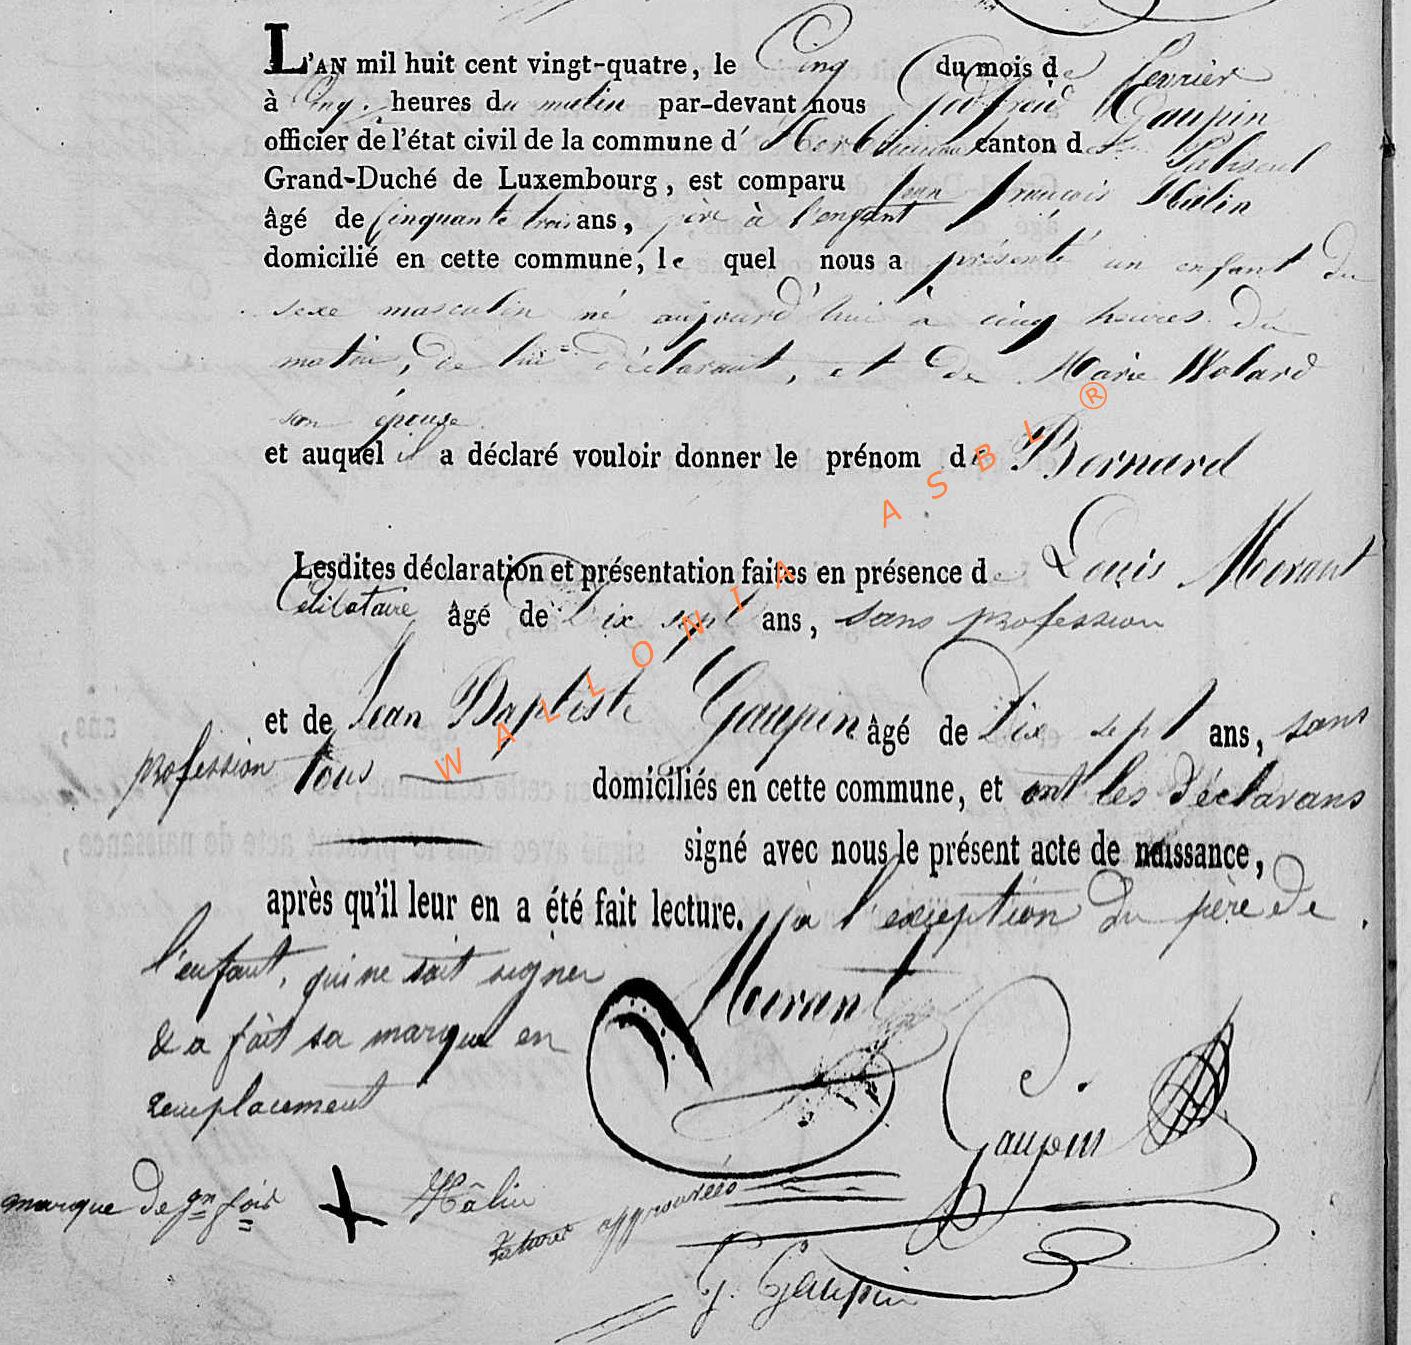 L'AN mil huit cent vingt-quatre, le Cinq du mois de fevrier
à Cinq heures du matin par-devant nous Godfroid Gaupin
officier de l'état civil de la commune d' canton de Paliseul
Grand-Duché de Luxembourg, est comparu Jean françois Hâlin
âgé de Cinquante trois ans, père à l'enfant
domicilié en cette commune, le quel nous a présenté un enfant du
sexe masculin né aujourd'hui à cinq heures du
matin, de lui déclarant, et de Marie Wolard
son épouse
et auquel il a déclaré vouloir donner le prénom de Bernard
Lesdites déclaration et présentation faites en présence de Louis Morant
Célibataire âgé de Dix sept ans, sans profession
et de Jean Baptiste Gaupin âgé de Dix sept ans, sans
profession tous domiciliés en cette commune, et ont les déclarans
signé avec nous le présent acte de naissance,
après qu'il leur en a été fait lecture. à l'exception du père de
l'enfant, qui ne sait signer
& a fait sa marque en
remplacement
Morant
Gaupin
marque de jn fois Hâlin
ratures approuvées
G. Gaupin
WALLONIA ASBL ®